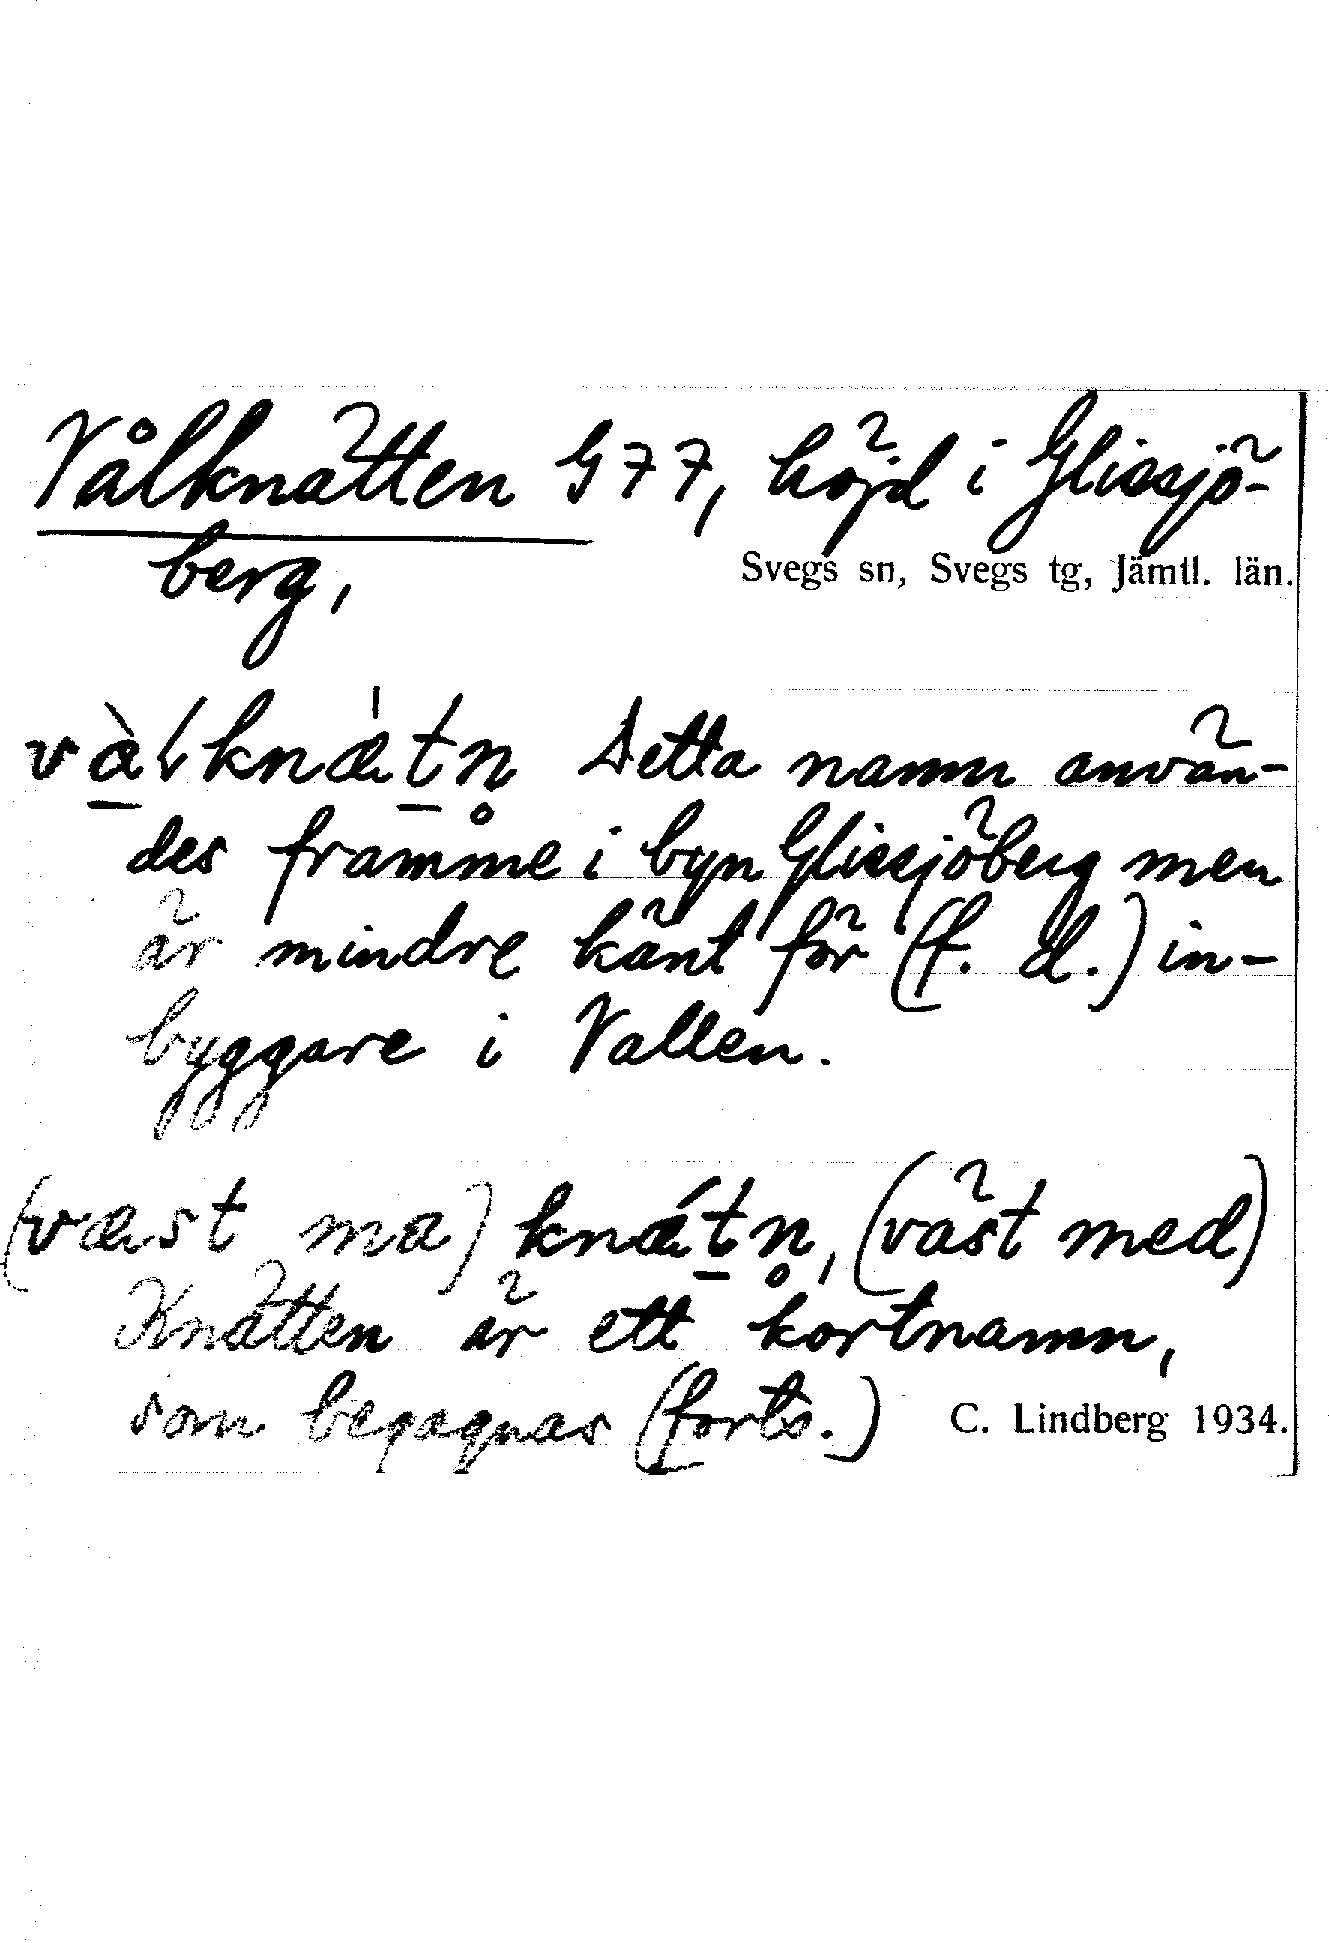 Vålknätten G77, höjd i Glissjö-
berg,
Svegs sn, Svegs tg, Jämtl. län.
vàlknǽt̠n̥ Detta namn använ-
des framme i byn Glissjöberg men
är mindre känt för (f. d.) in-
byggare i Vallen.
(væst ma) knǽt̠n̥, (väst med)
Knätten är ett kortnamn,
som begagnas (forts.)
C. Lindberg 1934.